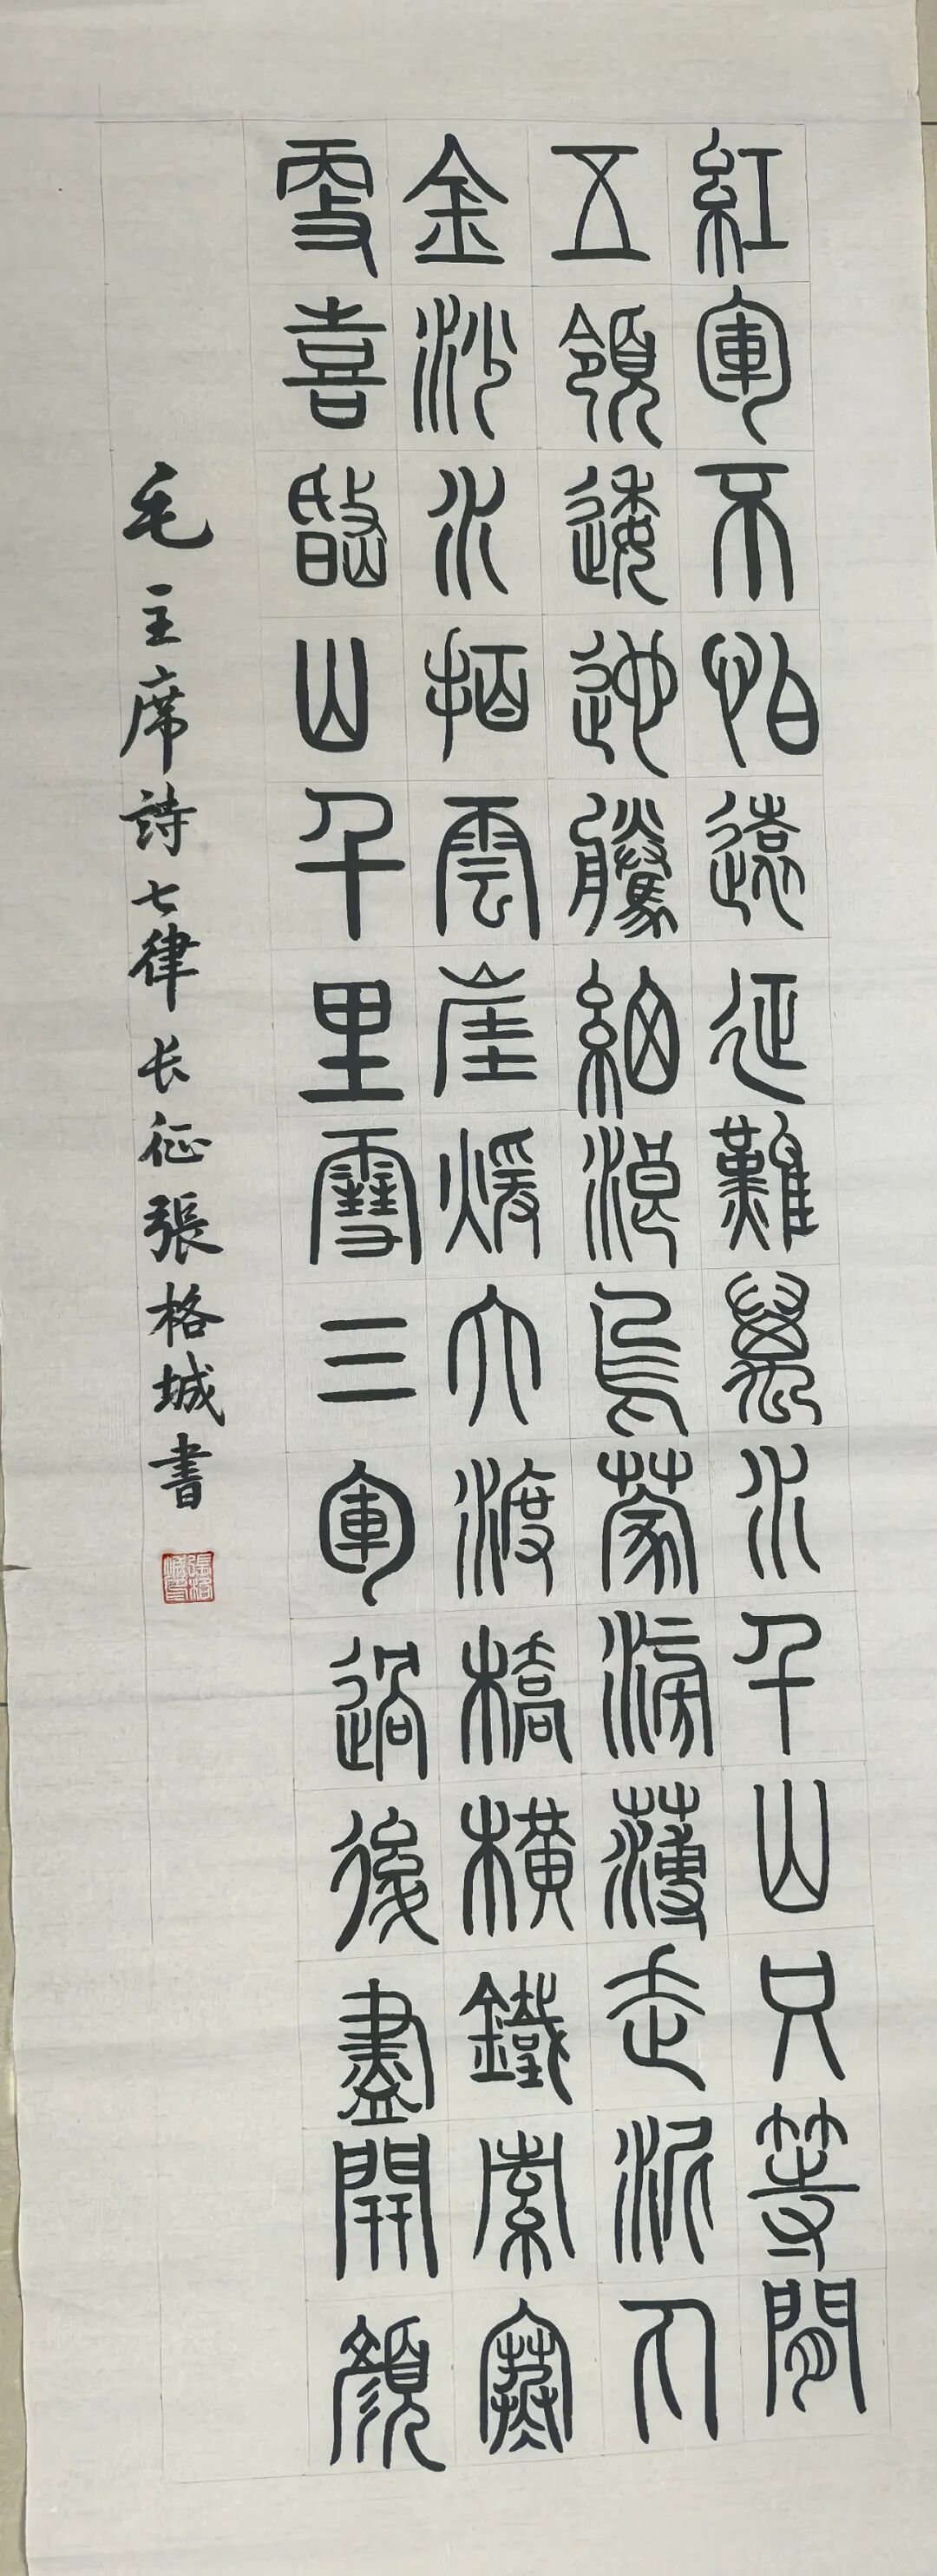 紅軍不怕遠征難萬水千山只等閒
五領逶迤騰細浪烏蒙滂薄走泥丸
金沙水拍雲崖煖大渡橋橫鐵索寒
更喜岷山千里雪三軍過後盡開顏
毛主席詩七律长征張格城書